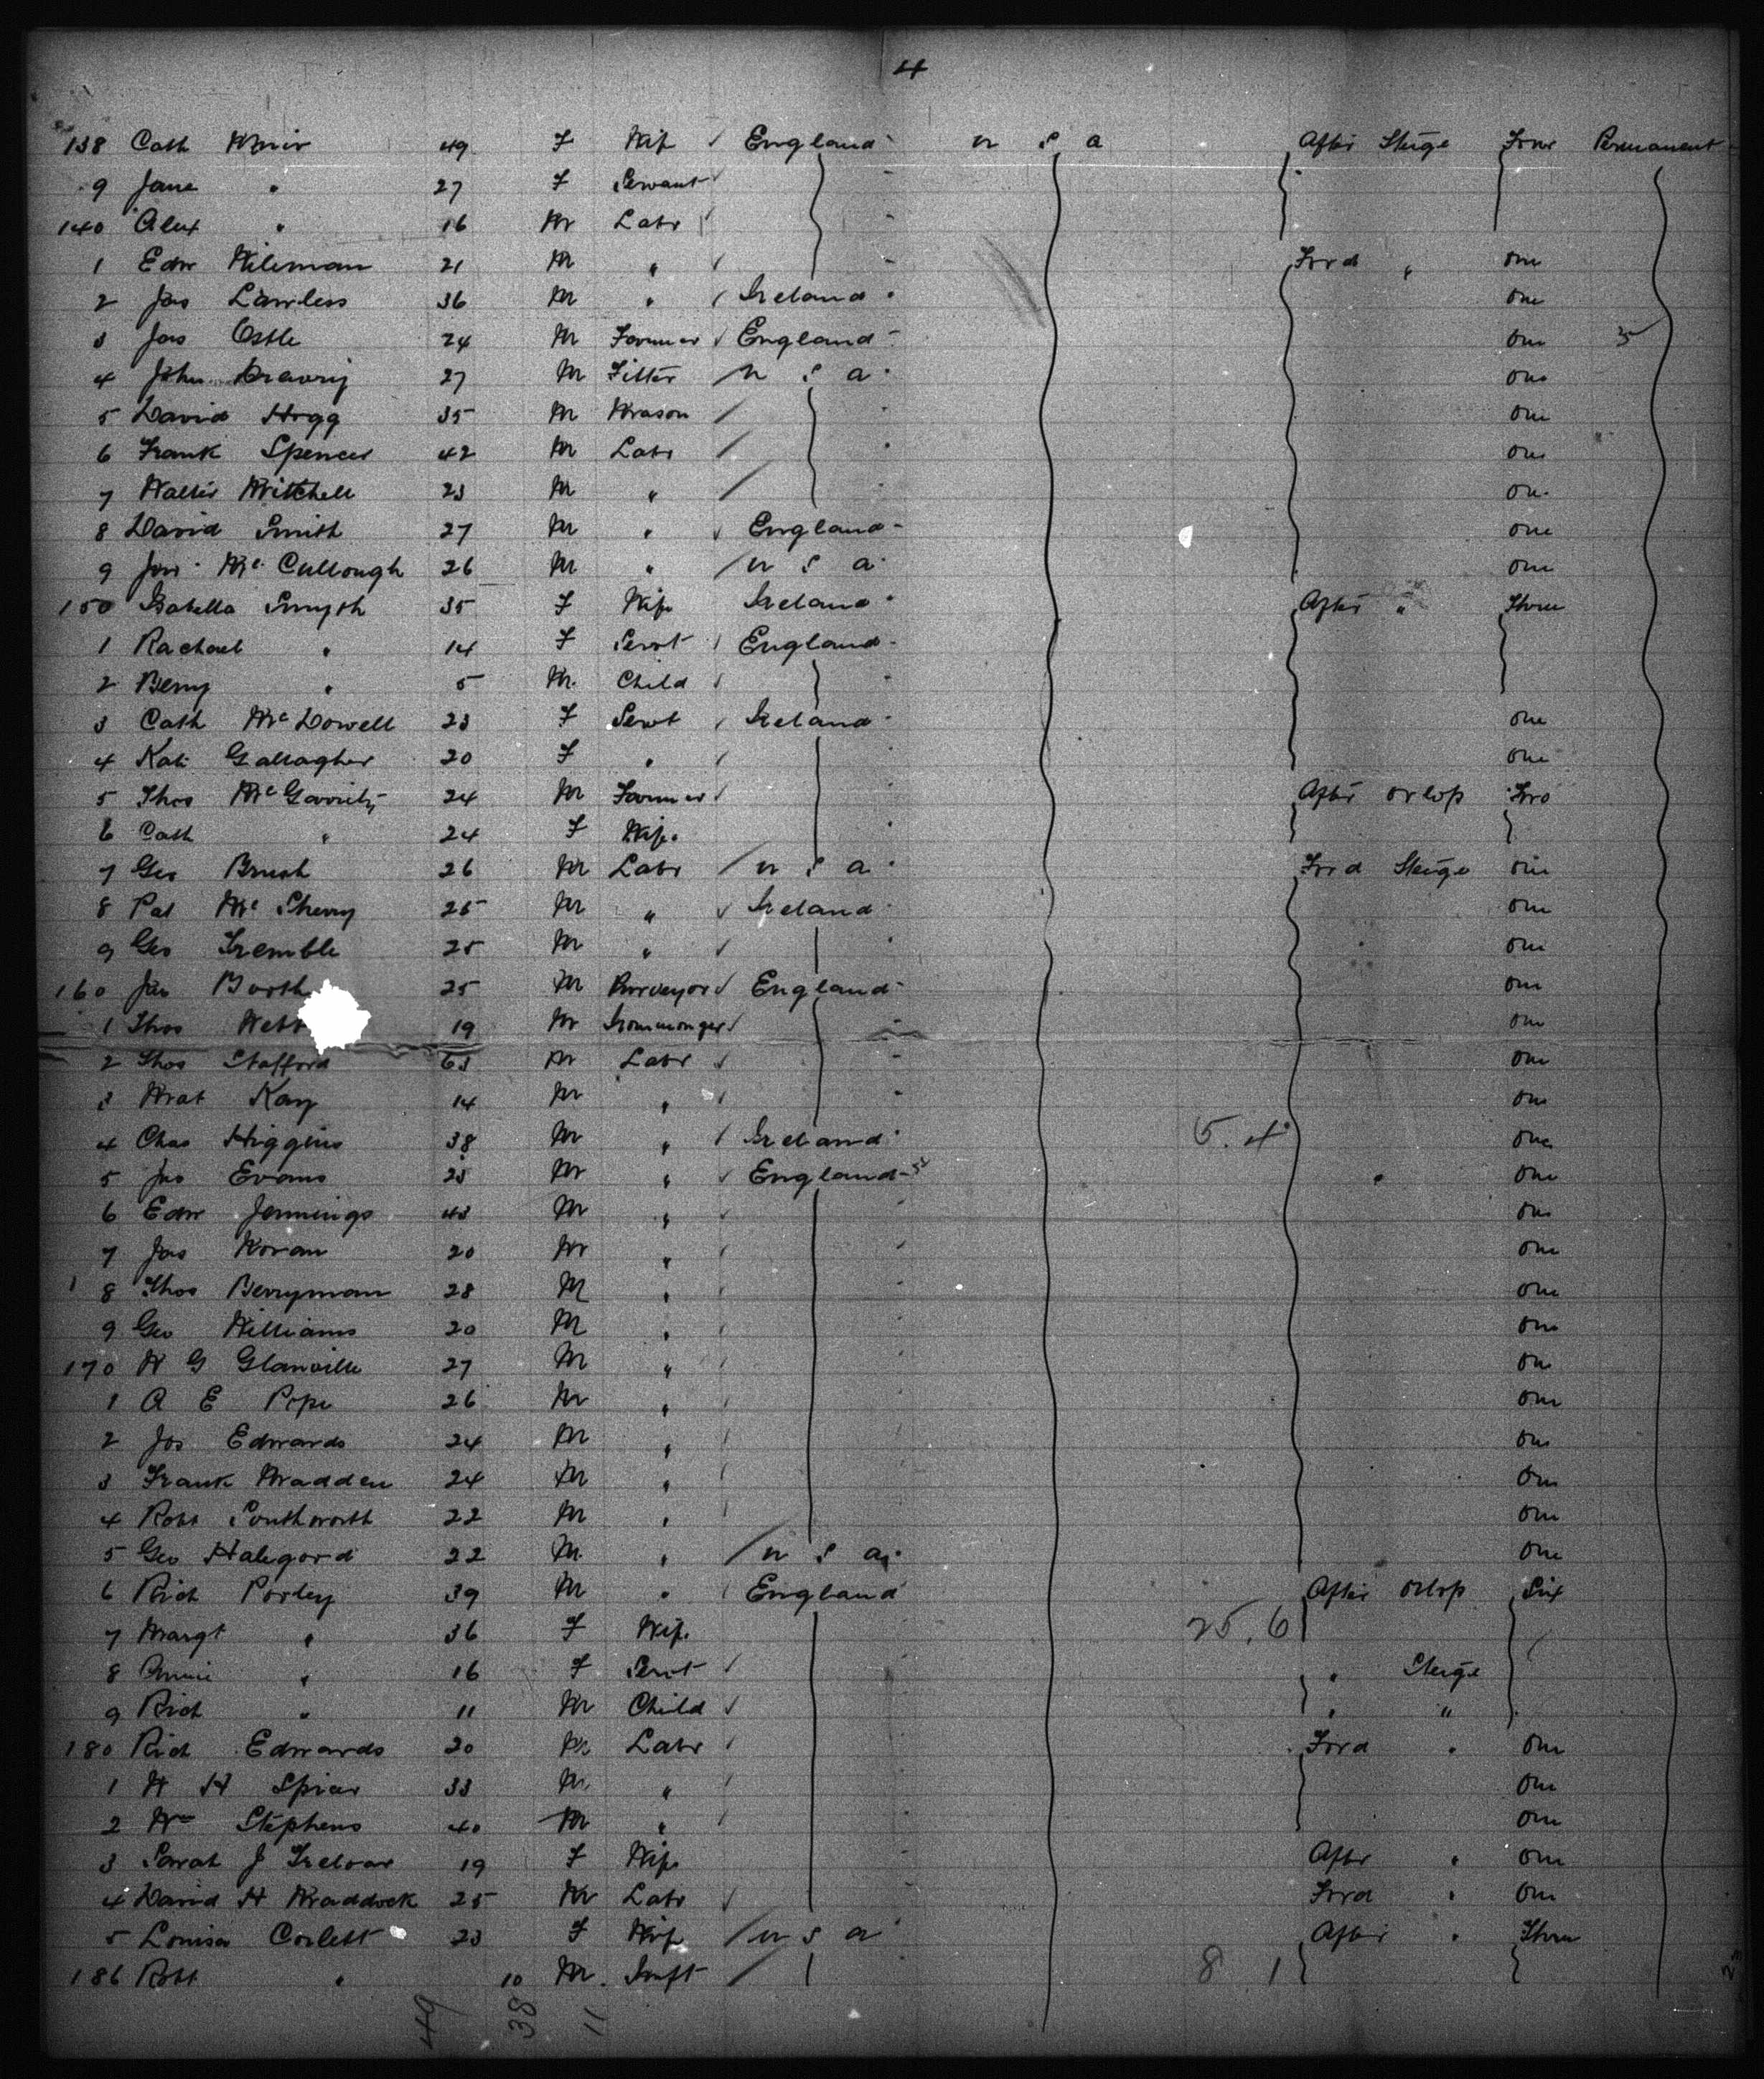 4
138 Cath Muir 49 F Wife England U S A After Steige Four Permanent
9 Jane " 27 F Servant
140 Alex " 16 M Labr
1 Edw Wileman 21 M " Ford " One
2 Jas Lawless 36 M " Ireland One
3 Jas Ostle 24 M Farmer England One
4 John 27 M Fitter U S A One
5 David Hogg 35 M Mason One
6 Frank Spencer 42 M Labr One
7 Walter Mitchell 23 M " One
8 David Smith 27 M " England One
9 Mc Cullough 26 M " U S A One
150 Isabella Smyth 35 F Wife Ireland After " Three
1 Rachael " 14 F Servt England
2 " 5 M Child
3 Cath McDowell 23 F Servt Ireland One
4 Kate Gallagher 20 F " One
5 Thos McGarrity 24 M Farmer After Orlop Two
6 Cath " 24 F Wife
7 Geo Brush 26 M Labr U S A Ford Steige One
8 Pat McSherry 25 M " Ireland One
9 Geo Tremble 25 M " One
160 Jas 25 M England One
1 Thos 19 M Ironmonger One
2 Thos Stafford 63 M Labr One
3 Mat Kay 14 M " One
4 Chas Higgins 38 M " Ireland 5.4 One
5 Jas Evans 23 M " England " One
6 Edw Jennings 43 M " One
7 Jas Moran 20 M " One
8 Thos Berryman 28 M " One
9 Geo Williams 20 M " One
170 W G Glanville 27 M " One
1 A E Pope 26 M " One
2 Jos Edwards 24 M " One
3 Frank Madden 24 M " One
4 Robt Southworth 22 M " One
5 Geo 22 M " U S A One
6 Rich 39 M " England After Orlop Six
7 Margt " 36 F Wife 25.6
8 Annie " 16 F Servt " Steige
9 Rich " 11 M Child " "
180 Rich Edwards 20 M Labr Ford " One
1 W H 33 M " One
2 Wm Stephens 40 M " One
3 Sarah J Treloar 19 F Wife After " One
4 David H Maddock 25 M Labr Ford " One
5 Louisa Corlett 23 F Wife U S A After " Three
186 Robt " 10 M Inft 8 1
49 38 11